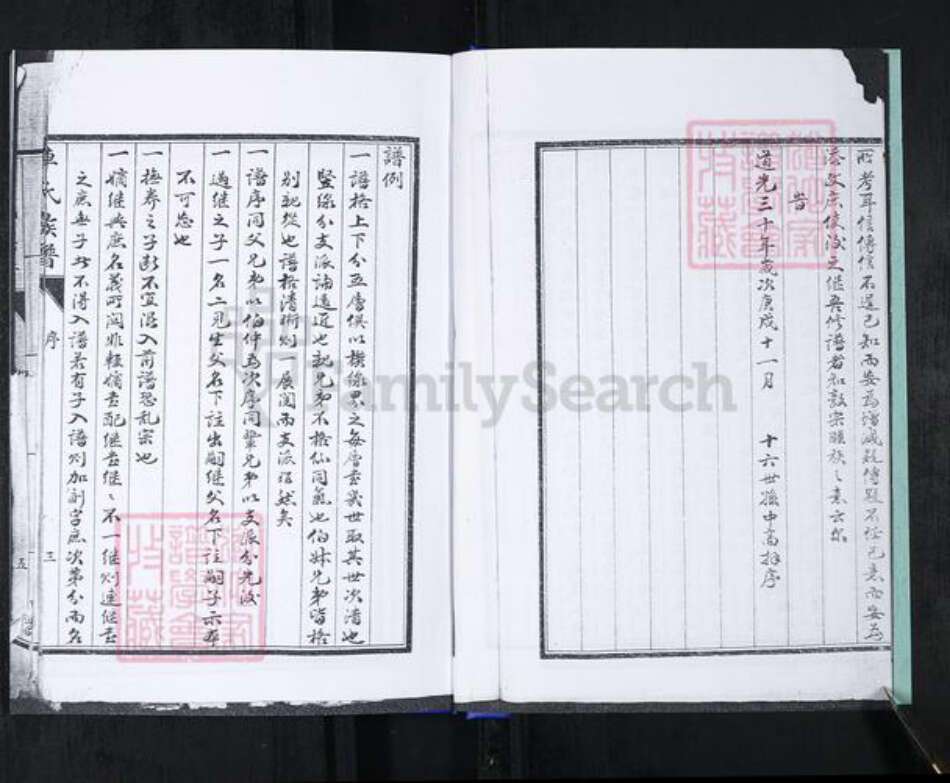 所考耳信傳信不逞己知而妄為增減疑傳疑不任己意而妄為
添文庶後汝之繼吾修譜者知敦宗睦族之意云尔
時
道光三十年歲次庚戌十一月 十六世孫中高拜序
譜例
一譜格上下分五層俱以橫絲界之每層書幾世取其世次清也
竪絲分支派論遠近也親兄弟不格似同氣也伯姊兄弟皆格
別親從也譜格清晰則一展閱而支派瞭然矣
一譜序同父兄弟以伯仲為次序同輩兄弟以支派分先後
一過繼之子一名二見生父名下註出嗣繼父名下註嗣子示本
不可忘也
一撫養之子斷不宜混入前譜恐亂宗也
一嫡繼與庶名義所關非輕嫡書配繼書繼繼不一繼則連繼書
之庶無子女不得入譜若有子入譜則加副字庶次第分而名
氏族譜
序
三
五
FamilySearch